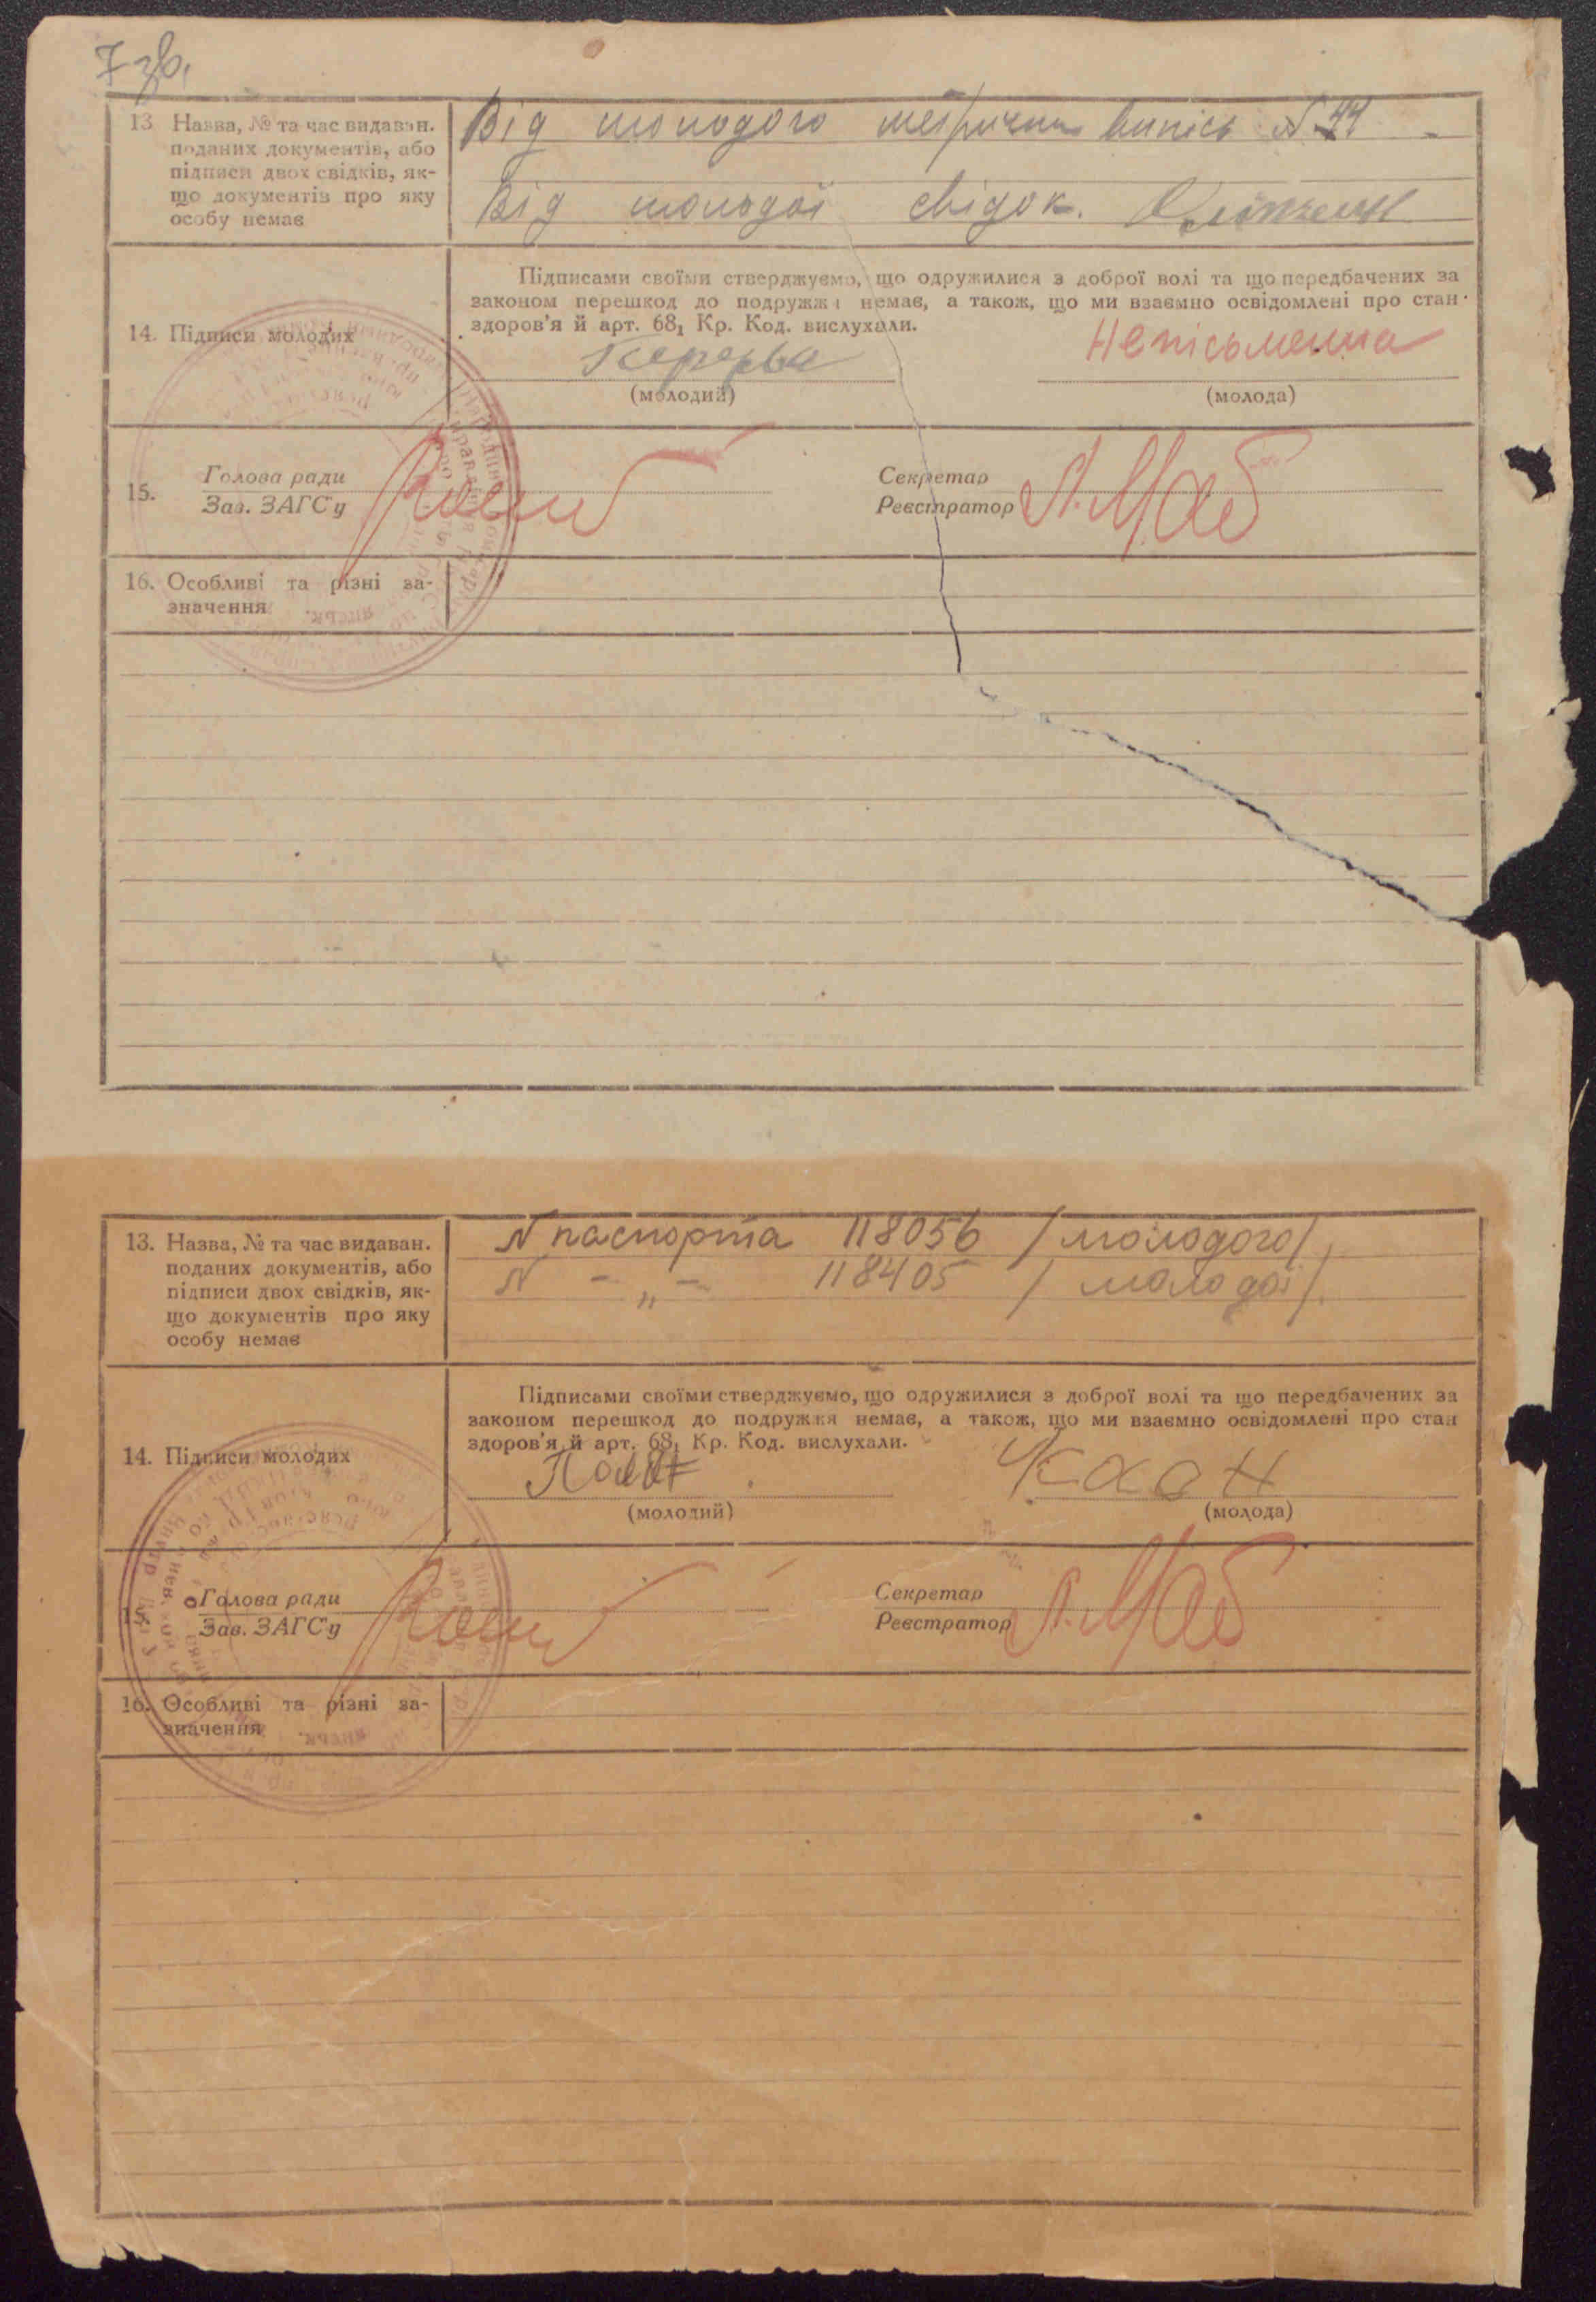 7 зв.
13 Назва, № та час видаван.
поданих документів, або
підписи двох свідків, як-
що документів про яку
особу немає
Від молодого метричних випись N 44
Від молодої свідок.
14. Підписи молодих
Підписами своїми стверджуємо, що одружилися з доброї волі та що передбачених за
законом перешкод до подружжя немає, а також, що ми взаємно освідомлені про стан
здоров'я й арт. 68₁ Кр. Код. вислухали.
Неписьменна
(молодий)
(молода)
15.
Голова ради
Зав. ЗАГС'у
Секретар
Реєстратор
16. Особливі та різні за-
значення
13. Назва, № та час видаван.
поданих документів, або
підписи двох свідків, як-
що документів про яку
особу немає
N паспорта 118056 /молодого/,
N - „ - 118405 /молодої/.
14. Підписи молодих
Підписами своїми стверджуємо, що одружилися з доброї волі та що передбачених за
законом перешкод до подружжя немає, а також, що ми взаємно освідомлені про стан
здоров'я й арт. 68₁ Кр. Код. вислухали.
(молодий)
(молода)
15.
Голова ради
Зав. ЗАГС'у
Секретар
Реєстратор
16. Особливі та різні за-
значення